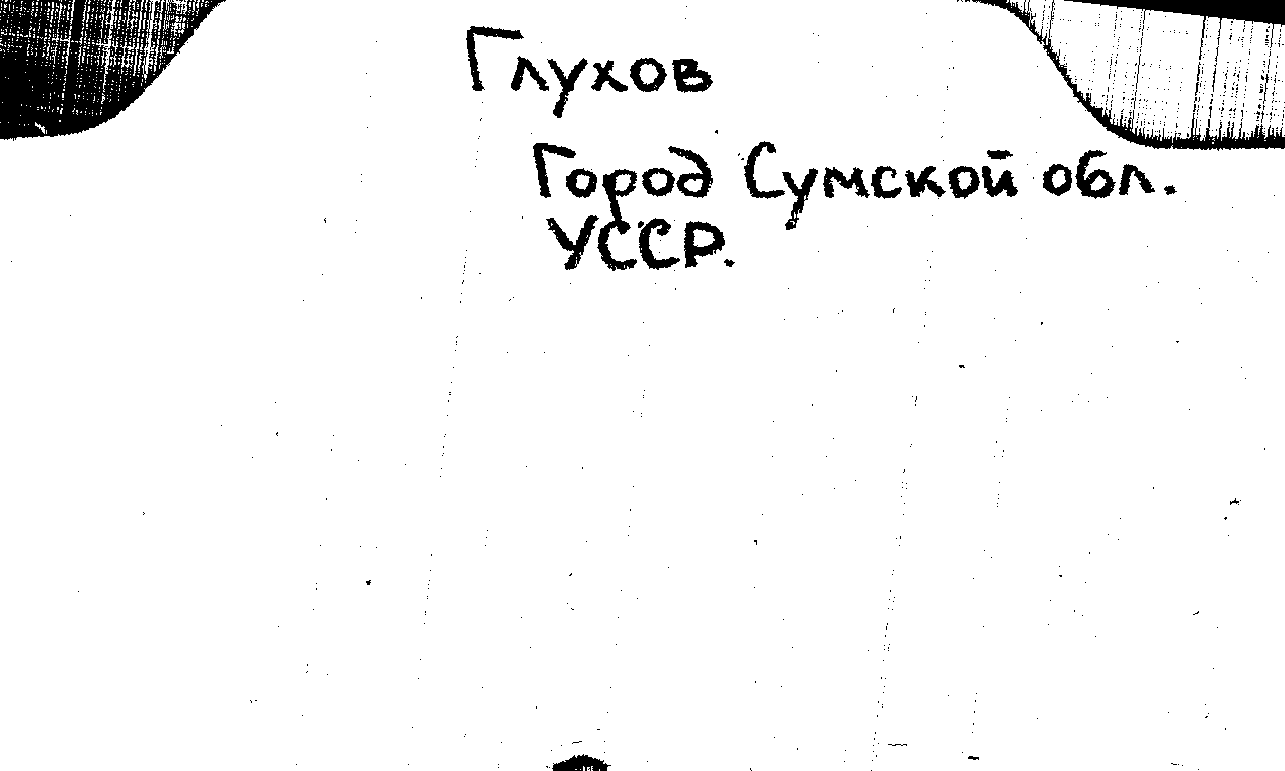 Глухов
Город Сумской обл.
УССР.